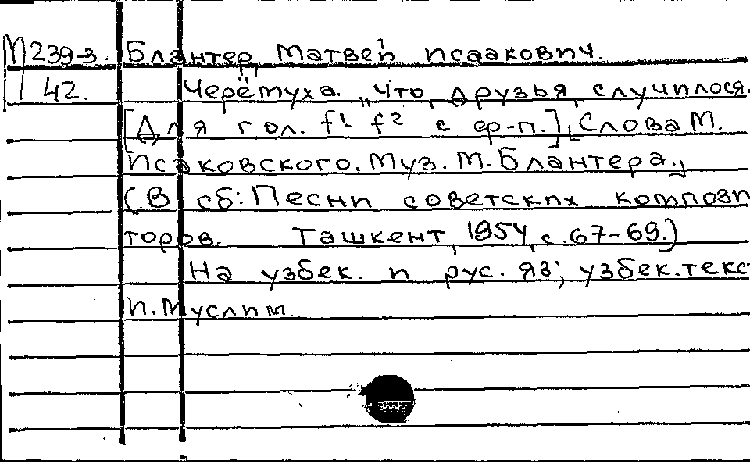 М239-3. Блантер, Матвей Исаакович.
42. Черёмуха. „Что, друзья, случилося.
[Для гол. f¹ f² с ф-п.] Слова М.
Исаковского. Муз. М. Блантера.
(В сб: Песни советских компози
торов. Ташкент, 1954, с. 67-69.)
На узбек. и рус. яз; узбек.текс
И. Муслим.